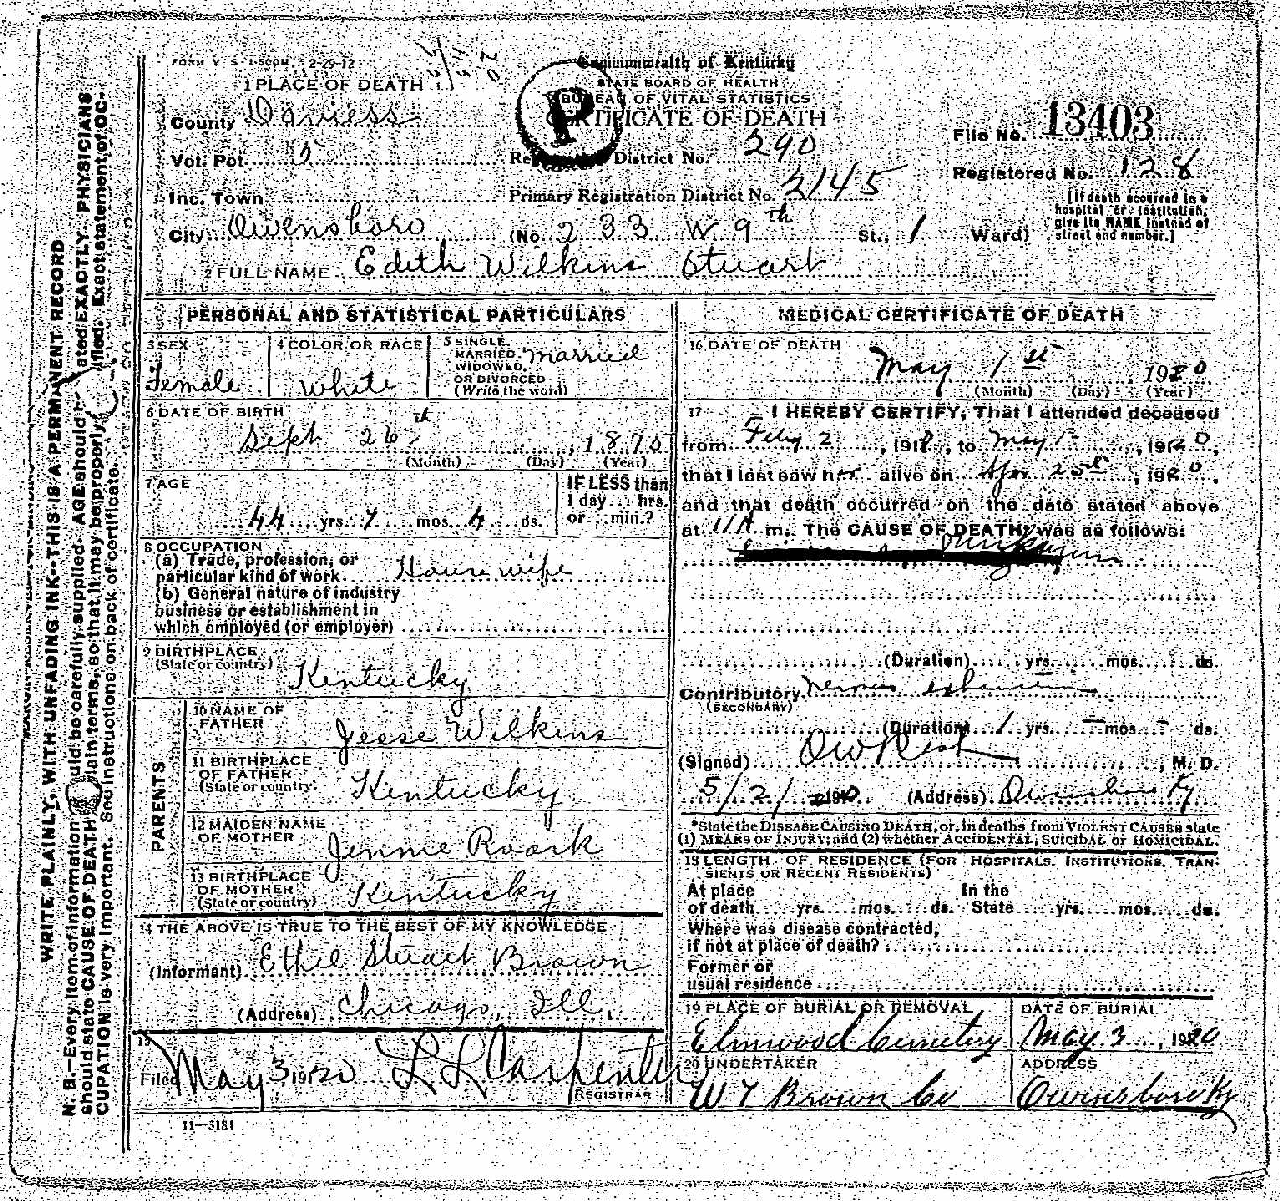 FORM V. S. 1-500M 2-29-12
Commonwealth of Kentucky
STATE BOARD OF HEALTH
BUREAU OF VITAL STATISTICS
CERTIFICATE OF DEATH
P
1 PLACE OF DEATH
County Daviess
File No. 13403
Vot. Pct. 5
District No. 290
Registered No. 128
Inc. Town
Primary Registration District No. 2145
[If death occurred in a hospital or institution, give its NAME instead of street and number.]
City Owensboro (No. 233 W 9th St., 1 Ward)
2 FULL NAME Edith Wilkins Stuart
PERSONAL AND STATISTICAL PARTICULARS
3 SEX
Female
4 COLOR OR RACE
White
5 SINGLE,
MARRIED,
WIDOWED,
OR DIVORCED
(Write the word)
Married
6 DATE OF BIRTH
Sept 26th, 1875
(Month) (Day) (Year)
7 AGE
44 yrs. 7 mos. 4 ds.
IF LESS than
1 day ... hrs.
or ... min.?
8 OCCUPATION
(a) Trade, profession, or
particular kind of work Housewife
(b) General nature of industry
business or establishment in
which employed (or employer)
9 BIRTHPLACE
(State or country) Kentucky
PARENTS
10 NAME OF
FATHER Jesse Wilkins
11 BIRTHPLACE
OF FATHER
(State or country) Kentucky
12 MAIDEN NAME
OF MOTHER Jennie Roark
13 BIRTHPLACE
OF MOTHER
(State or country) Kentucky
14 THE ABOVE IS TRUE TO THE BEST OF MY KNOWLEDGE
(Informant) Ethel Stuart Brown
(Address) Chicago, Ill.
15
Filed May 3 1920 L L Carpenter
REGISTRAR
11-3184
MEDICAL CERTIFICATE OF DEATH
16 DATE OF DEATH
May 1st, 1920
(Month) (Day) (Year)
17 I HEREBY CERTIFY, That I attended deceased
from Feby 2, 1918, to May 1, 1920,
that I last saw her alive on Apr 25th, 1920,
and that death occurred on the date stated above
at 11A m. The CAUSE OF DEATH* was as follows:
(Duration) yrs. mos. ds.
Contributory
(SECONDARY)
(Duration) 1 yrs. - mos. - ds.
(Signed) , M. D.
5/2/ (Address) Owensboro Ky
*State the DISEASE CAUSING DEATH, or, in deaths from VIOLENT CAUSES state
(1) MEANS OF INJURY; and (2) whether ACCIDENTAL, SUICIDAL or HOMICIDAL.
18 LENGTH OF RESIDENCE (FOR HOSPITALS, INSTITUTIONS, TRANSIENTS OR RECENT RESIDENTS)
At place In the
of death yrs. mos. ds. State yrs. mos. ds.
Where was disease contracted,
if not at place of death?
Former or
usual residence
19 PLACE OF BURIAL OR REMOVAL
Elmwood Cemetery
DATE OF BURIAL
May 3, 1920
20 UNDERTAKER
W T Brown Co
ADDRESS
Owensboro Ky
WRITE PLAINLY, WITH UNFADING INK--THIS IS A PERMANENT RECORD
N. B.—Every item of information should be carefully supplied. AGE should be stated EXACTLY. PHYSICIANS
should state CAUSE OF DEATH in plain terms, so that it may be properly classified. Exact statement of OC-
CUPATION is very important. See instructions on back of certificate.